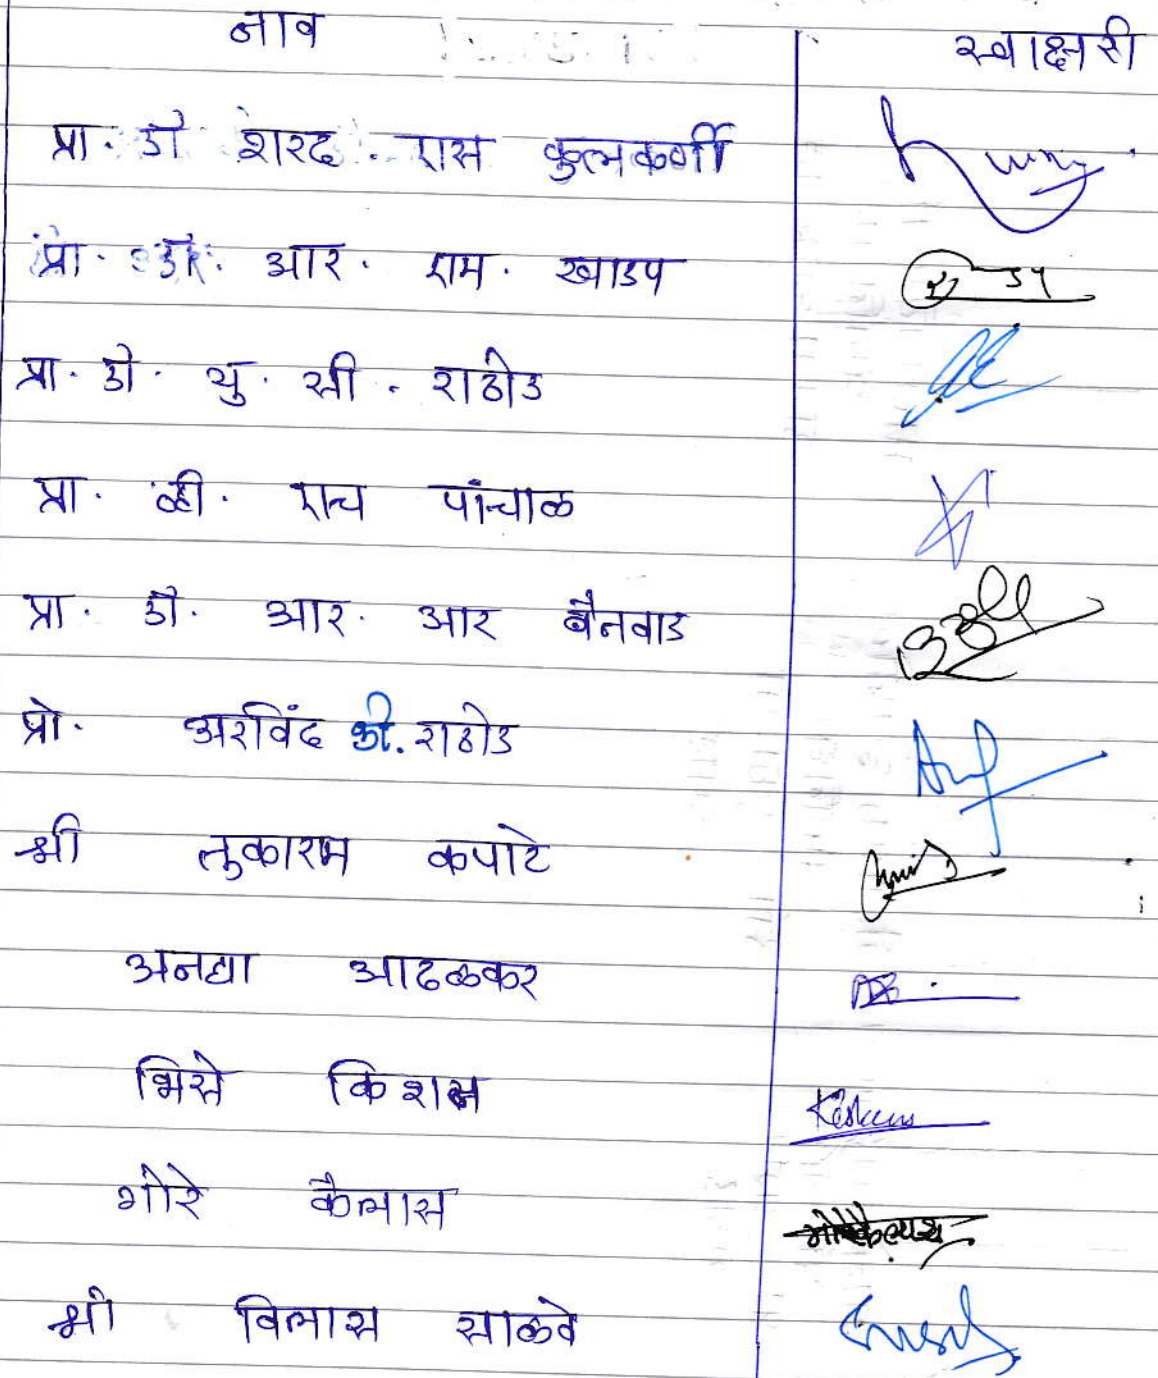 नाव स्वाक्षरी
प्रा. डॉ शरद. एस कुलकर्णी
प्रा. डॉ. आर. एम. खाडप
प्रा. डॉ. यु. सी. राठोड
प्रा. व्ही. एच पांचाळ
प्रा. डॉ. आर. आर बैनवाड
प्रो. अरविंद डी. राठोड
श्री तुकाराम कपाटे
अनघा आढळकर
भिसे किशन
मोरे कैलास
श्री विलास साळवे